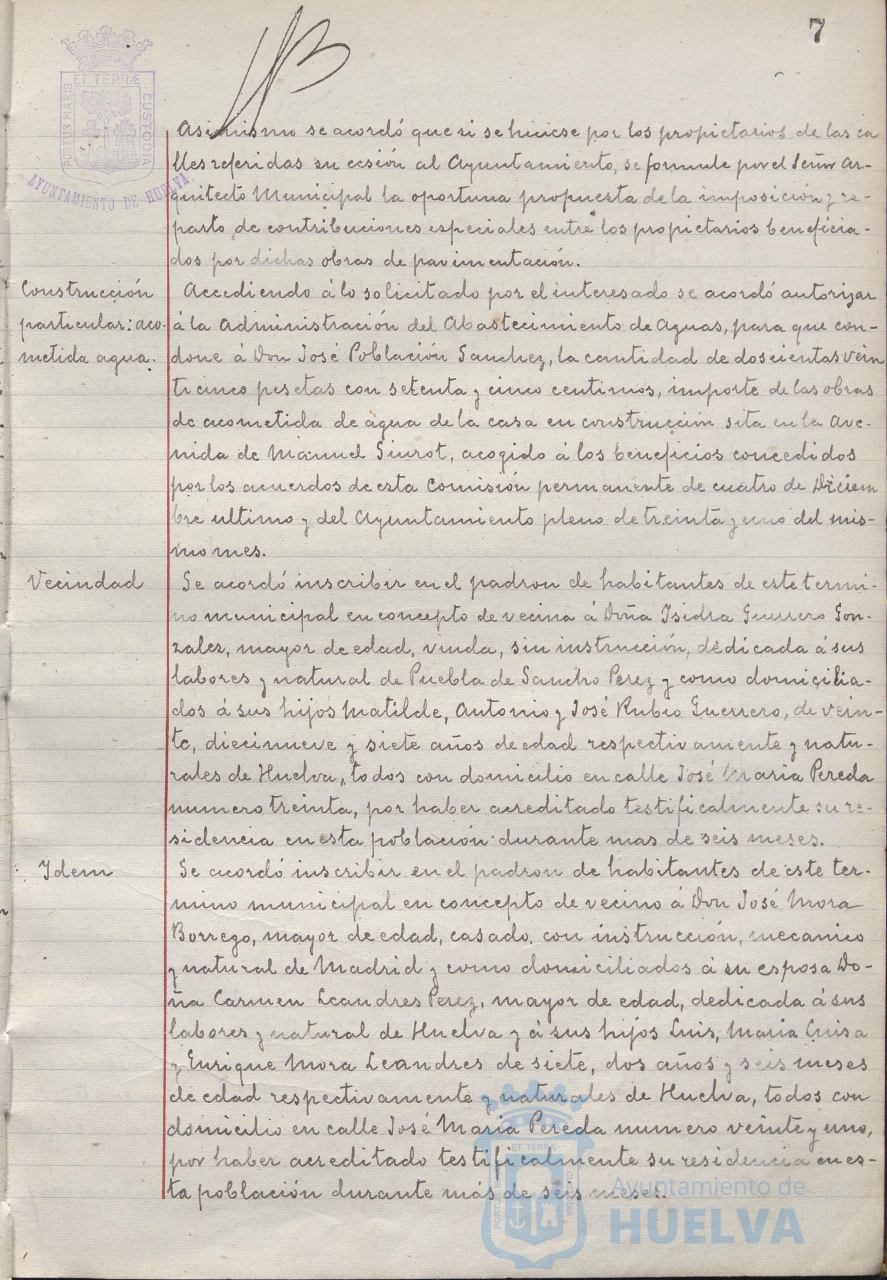 7
PORTUS MARIS ET TERRÆ CUSTODIA
AYUNTAMIENTO DE HUELVA
Asimismo se acordó que si se hiciese por los propietarios de las ca
lles referidas su cesión al Ayuntamiento, se formule por el Señor Ar-
quitecto Municipal la oportuna propuesta de la imposición y re-
parto de contribuciones especiales entre los propietarios beneficia-
dos por dichas obras de pavimentación.
Construcción
particular: aco-
metida agua.
Accediendo á lo solicitado por el interesado se acordó autorizar
á la Administración del Abastecimiento de Aguas, para que con-
done á Don José Población Sanchez, la cantidad de doscientas vein
ticinco pesetas con setenta y cinco centimos, importe de las obras
de acometida de agua de la casa en construcción sita en la Ave-
nida de Manuel Siurot, acogido á los beneficios concedidos
por los acuerdos de esta Comisión permanente de cuatro de Diciem
bre ultimo y del Ayuntamiento pleno de treinta y uno del mis-
mo mes.
Vecindad
Se acordó inscribir en el padron de habitantes de este termi-
no municipal en concepto de vecina á Doña Isidra Guerrero Gon-
zales, mayor de edad, viuda, sin instrucción, dedicada á sus
labores y natural de Puebla de Sancho Perez y como domicilia-
dos á sus hijos Matilde, Antonio y José Rubio Guerrero, de vein-
te, diecinueve y siete años de edad respectivamente y natu-
rales de Huelva, todos con domicilio en calle José Maria Pereda
numero treinta, por haber acreditado testificalmente su re-
sidencia en esta población durante mas de seis meses.
Idem
Se acordó inscribir en el padron de habitantes de este ter-
mino municipal en concepto de vecino á Don José Mora
Borrego, mayor de edad, casado, con instrucción, mecanico
y natural de Madrid y como domiciliados á su esposa Do-
ña Carmen Leandres Perez, mayor de edad, dedicada á sus
labores y natural de Huelva y á sus hijos Luis, Maria Luisa
y Enrique Mora Leandres de siete, dos años y seis meses
de edad respectivamente y naturales de Huelva, todos con
domicilio en calle José Maria Pereda numero veinte y uno,
por haber acreditado testificalmente su residencia en es-
ta población durante más de seis meses.
Ayuntamiento de
HUELVA